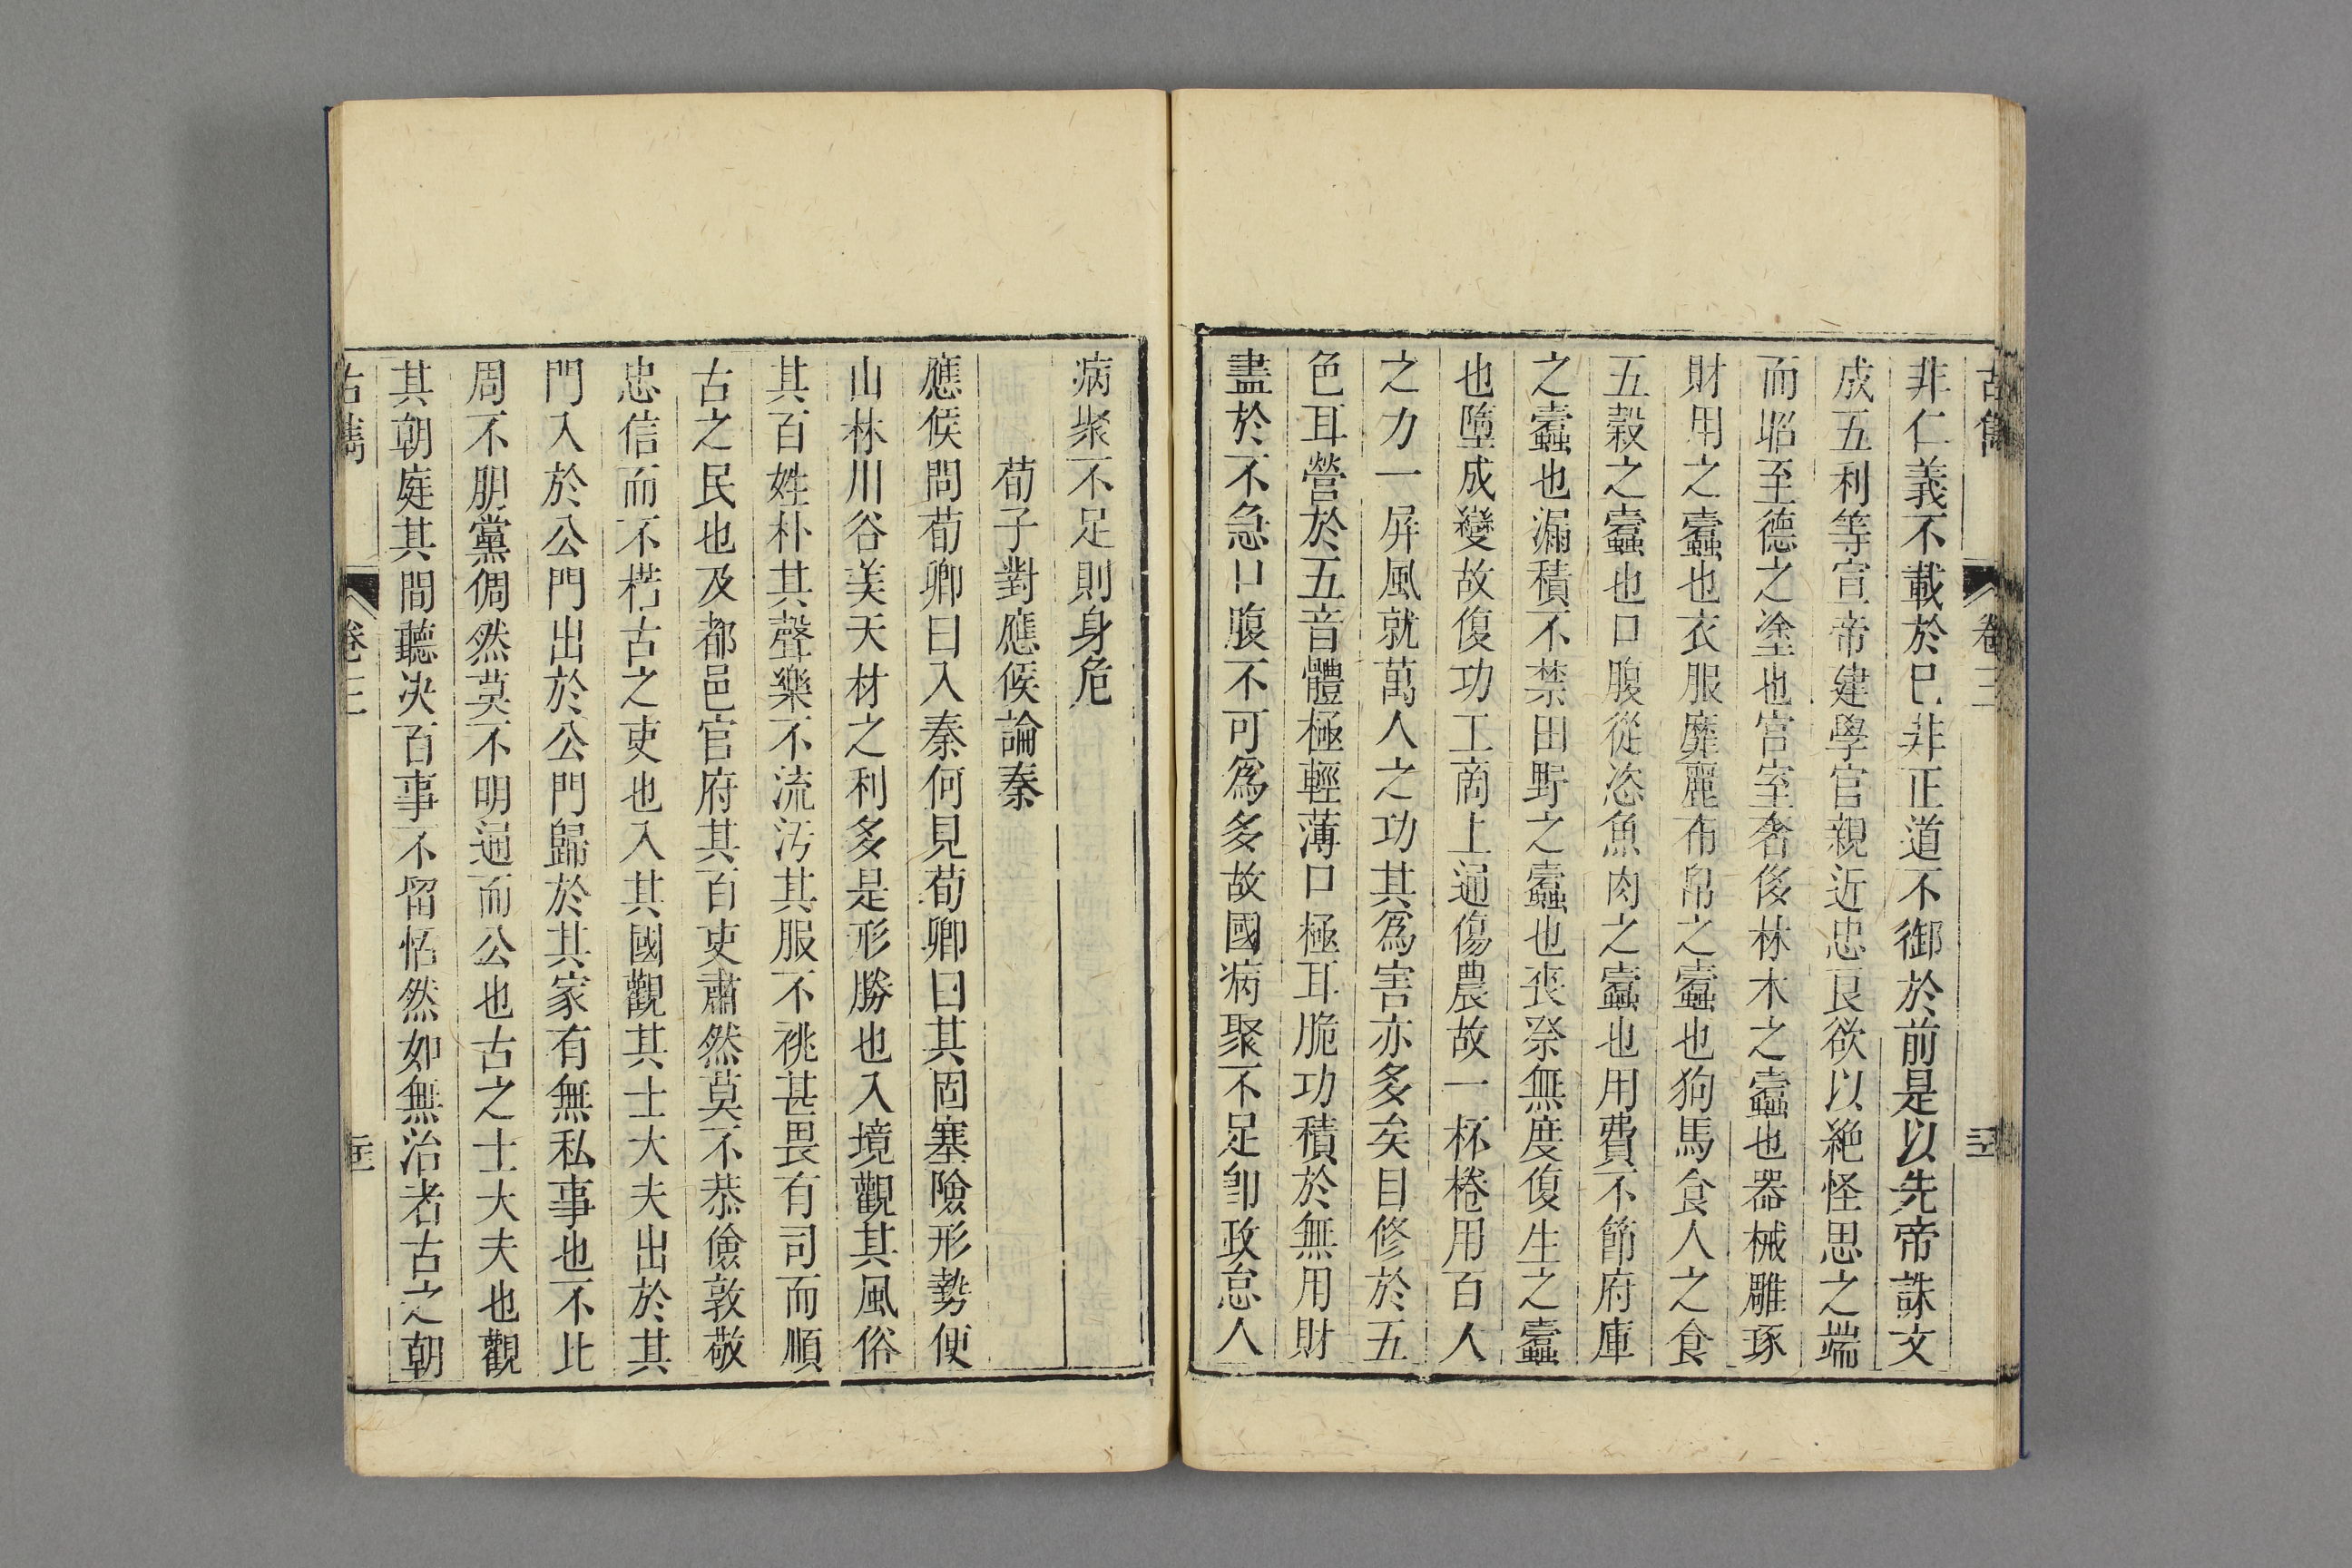 非仁義不載於巳非正道不御於前是以先帝誅文
成五利等宣帝建學官親近忠良欲以絶怪思之端
而昭至德之塗也宮室奢侈林木之蠹也器械雕琢
財用之蠹也衣服靡麗布帛之蠹也狗馬食人之食
五榖之蠹也口腹從恣魚肉之蠹也用費不節府庫
之蠹也漏積不禁田野之蠹也喪祭無度復生之蠹
也墮成變故復功工商上通傷農故一杯棬用百人
之力一屏風就萬人之功其爲害亦多矣目修於五
色耳營於五音體極輕薄口極耳脆功積於無用財
盡於不急口腹不可爲多故國病聚不足卽政怠人
病聚不足則身危
荀子對應侯論秦
應侯問荀卿曰入秦何見荀卿曰其固塞險形勢便
山林川谷美天材之利多是形勝也入境觀其風俗
其百姓朴其聲樂不流汚其服不祧甚畏有司而順
古之民也及都邑官府其百吏肅然莫不恭儉敦敬
忠信而不楛古之吏也入其國觀其士大夫出於其
門入於公門出於公門歸於其家有無私事也不比
周不朋黨倜然莫不明通而公也古之士大夫也觀
其朝庭其間聽决百事不留恬然如無治者古之朝
卷三